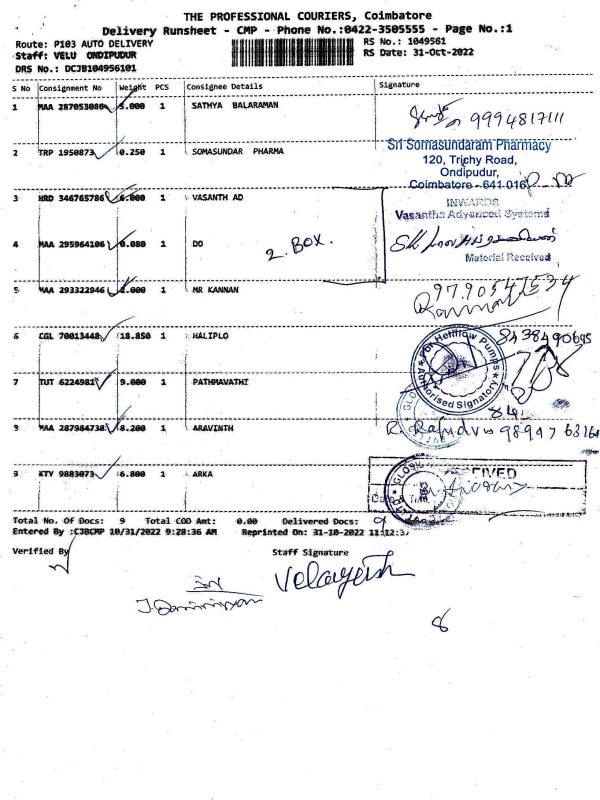 THE PROFESSIONAL COURIERS, Coimbatore
Delivery Runsheet - CMP - Phone No.:0422-3505555 - Page No.:1
Route: P103 AUTO DELIVERY
RS No.: 1049561
Staff: VELU ONDIPUDUR
RS Date: 31-Oct-2022
DRS No.: DCJB104956101
S No Consignment No Weight PCS Consignee Details Signature
1 MAA 287053086 5.000 1 SATHYA BALARAMAN
9994817111
2 TRP 1950873 0.250 1 SOMASUNDAR PHARMA
Sri Somasundaram Pharmacy
120, Trichy Road,
Ondipudur,
Coimbatore - 641 016
3 HRD 346765786 6.000 1 VASANTH AD
INWARDS
Vasantha Advanced Systems
4 MAA 295964106 0.080 1 DO
2. BOX.
Material Received
5 MAA 293322946 1 MR KANNAN
9790547534
6 CGL 70013448 18.850 1 HALIPLO
8438490695
For Heliflow Pumps
Authorised Signatory
7 TUT 6224981 9.000 1 PATHMAVATHI
8 MAA 287984738 8.200 1 ARAVINTH
9 KTV 9883073 6.800 1 ARKA
Total No. Of Docs: 9 Total COD Amt: 0.00 Delivered Docs: 9
Entered By :CJBCMP 10/31/2022 9:28:36 AM Reprinted On: 31-10-2022 11:12:3
Verified By
Staff Signature
Velayesh
8